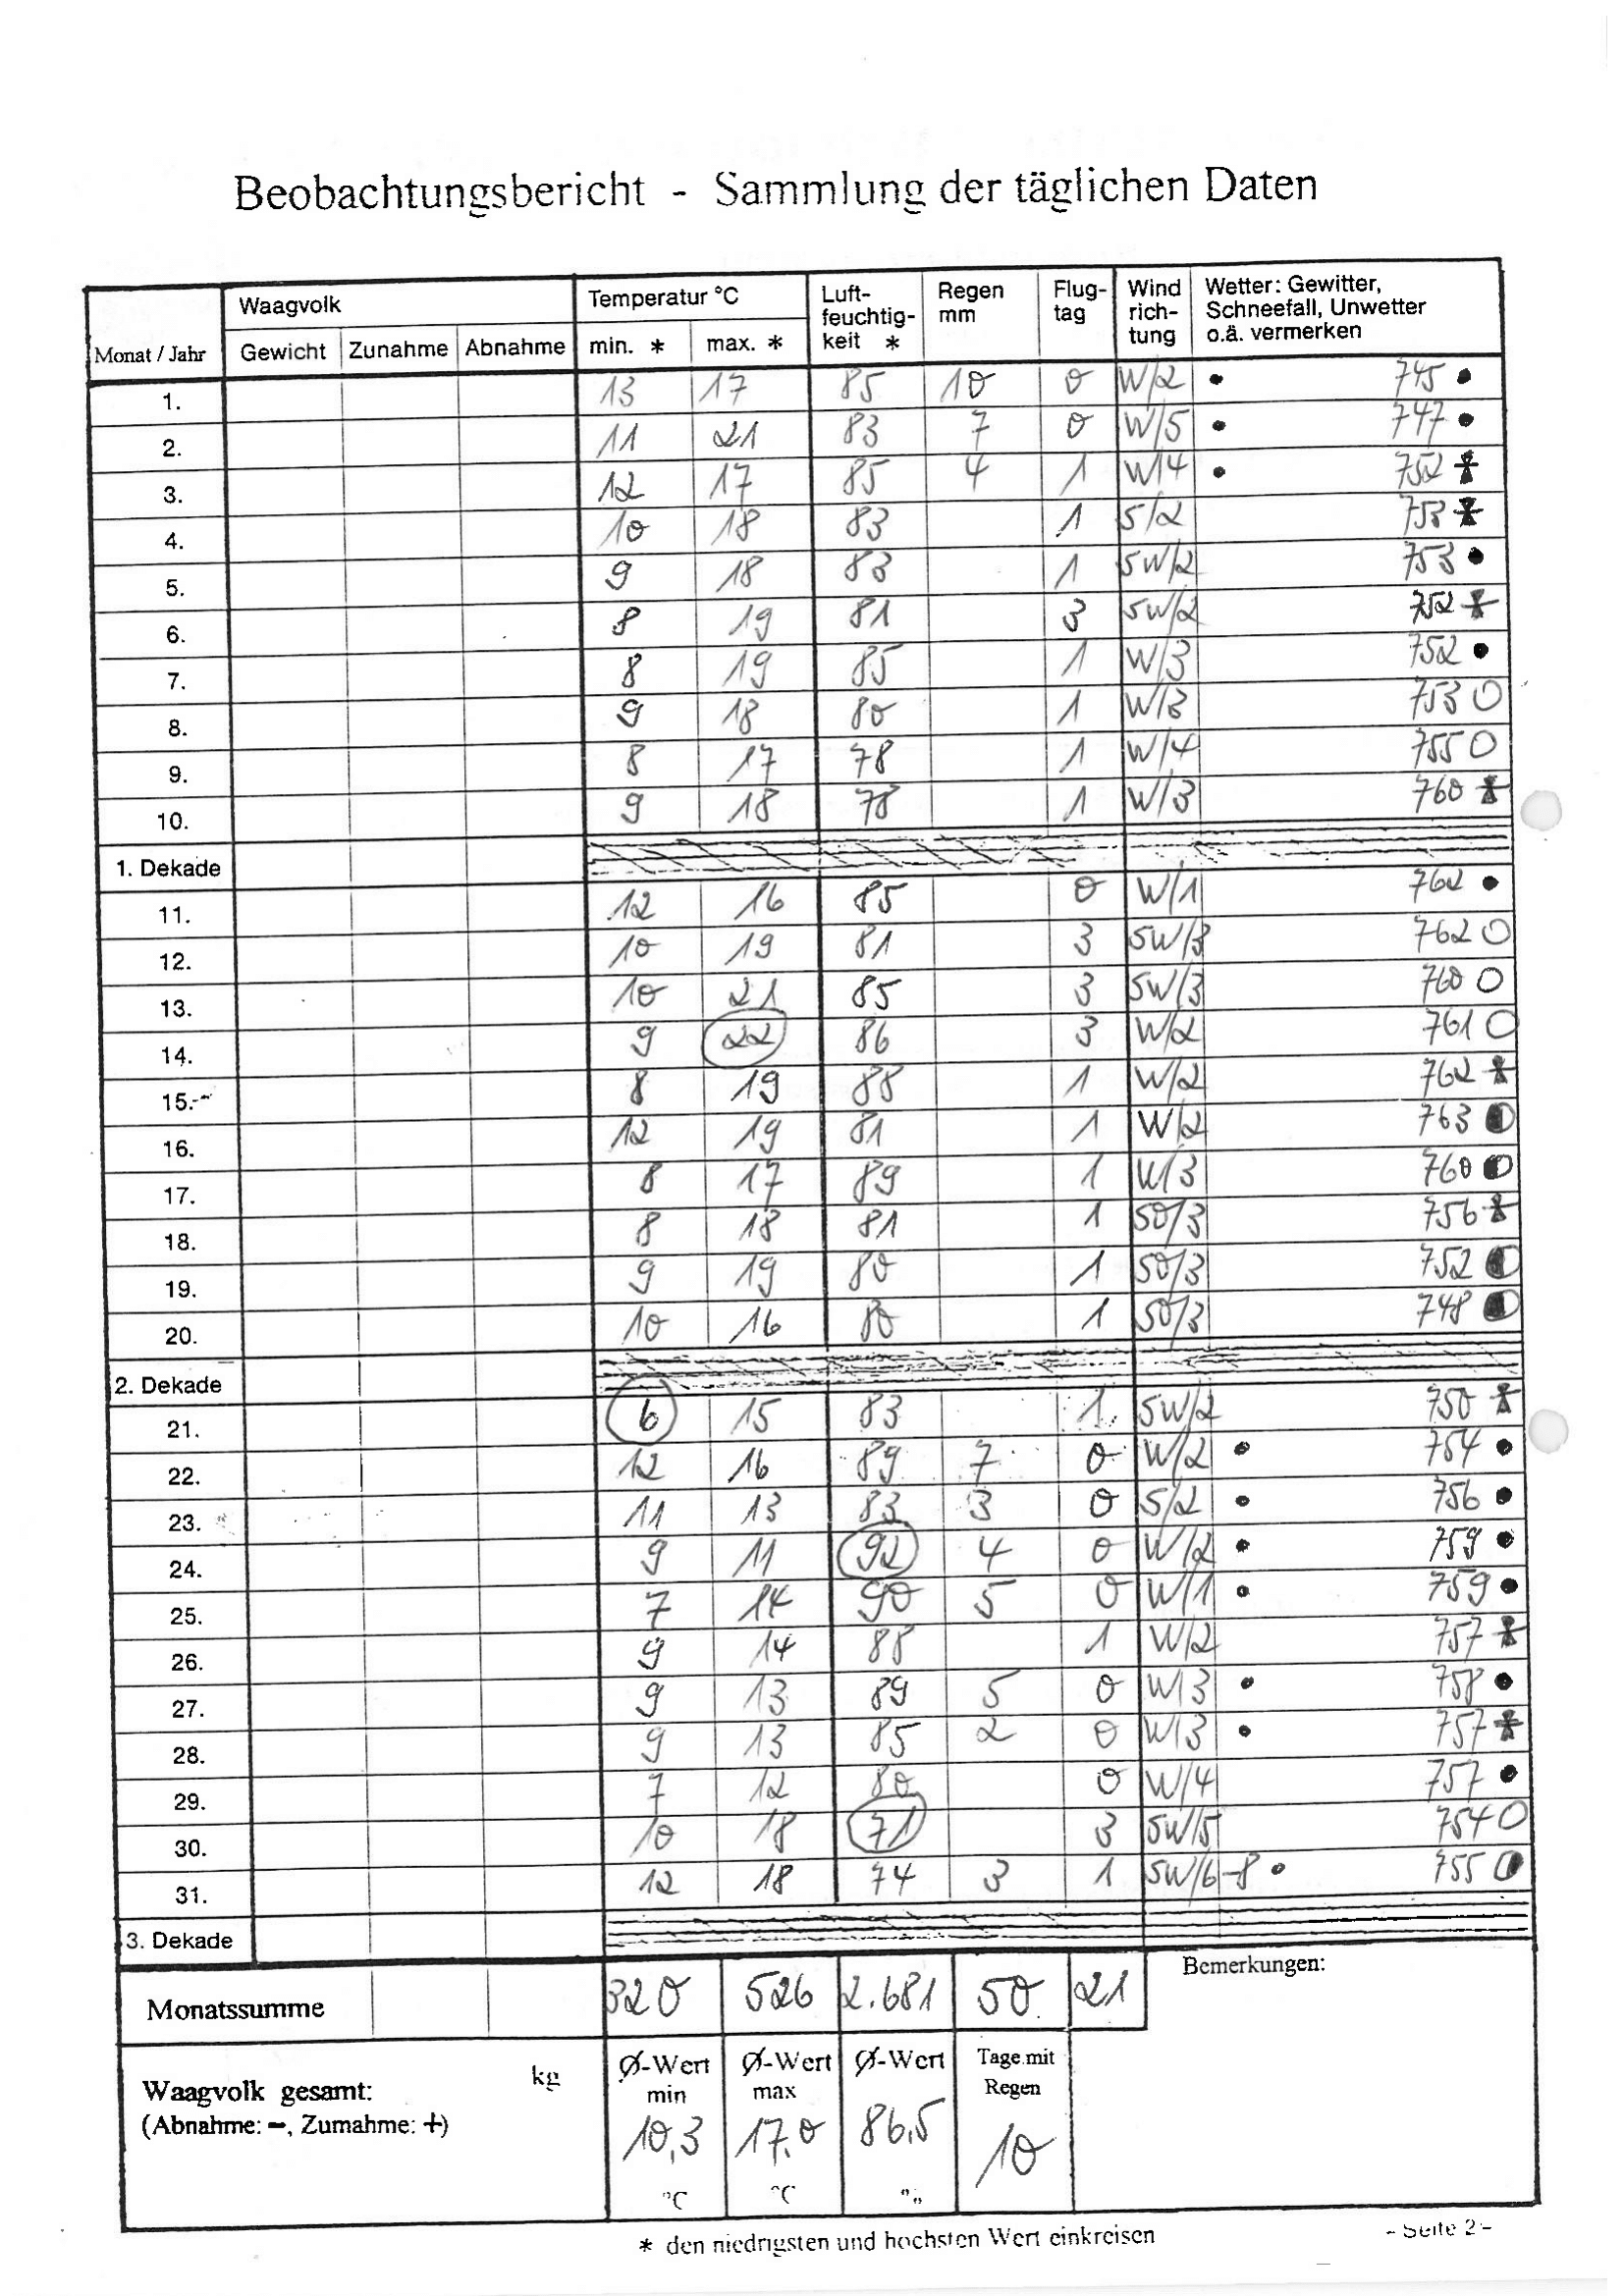 Beobachtungsbericht - Sammlung der täglichen Daten
Monat / Jahr
Waagvolk
Gewicht Zunahme Abnahme
Temperatur °C
min. * max. *
Luft-
feuchtig-
keit *
Regen
mm
Flug-
tag
Wind
rich-
tung
Wetter: Gewitter,
Schneefall, Unwetter
o.ä. vermerken
1. 13 17 85 10 0 W/2 • 745 •
2. 11 21 83 7 0 W/5 • 747 •
3. 12 17 85 4 1 W/4 • 752
4. 10 18 83 1 S/2 753
5. 9 18 83 1 SW/2 753 •
6. 8 19 81 3 SW/2 752
7. 8 19 85 1 W/3 752 •
8. 9 18 80 1 W/3 753 O
9. 8 17 78 1 W/4 755 O
10. 9 18 78 1 W/3 760
1. Dekade
11. 12 16 85 0 W/1 762 •
12. 10 19 81 3 SW/3 762 O
13. 10 21 85 3 SW/3 760 O
14. 9 22 86 3 W/2 761 O
15. 8 19 88 1 W/2 762
16. 12 19 81 1 W/2 763
17. 8 17 89 1 W/3 760
18. 8 18 81 1 SO/3 756
19. 9 19 80 1 SO/3 752
20. 10 16 80 1 SO/3 748
2. Dekade
21. 6 15 83 1 SW/2 750
22. 12 16 89 7 0 W/2 • 754 •
23. 11 13 83 3 0 S/2 • 756 •
24. 9 11 92 4 0 W/2 • 759 •
25. 7 14 90 5 0 W/1 • 759 •
26. 9 14 88 1 W/2 757
27. 9 13 89 5 0 W/3 • 758 •
28. 9 13 85 2 0 W/3 • 757
29. 7 12 80 0 W/4 757 •
30. 10 18 71 3 SW/5 754 O
31. 12 18 74 3 1 SW/6-8 • 755
3. Dekade
Monatssumme 320 526 2.681 50 21
Bemerkungen:
Waagvolk gesamt: kg
(Abnahme: -, Zumahme: +)
Ø-Wert
min
10,3
°C
Ø-Wert
max
17,0
°C
Ø-Wert
86,5
Tage mit
Regen
10
* den niedrigsten und hochsten Wert einkreisen
- Seite 2 -